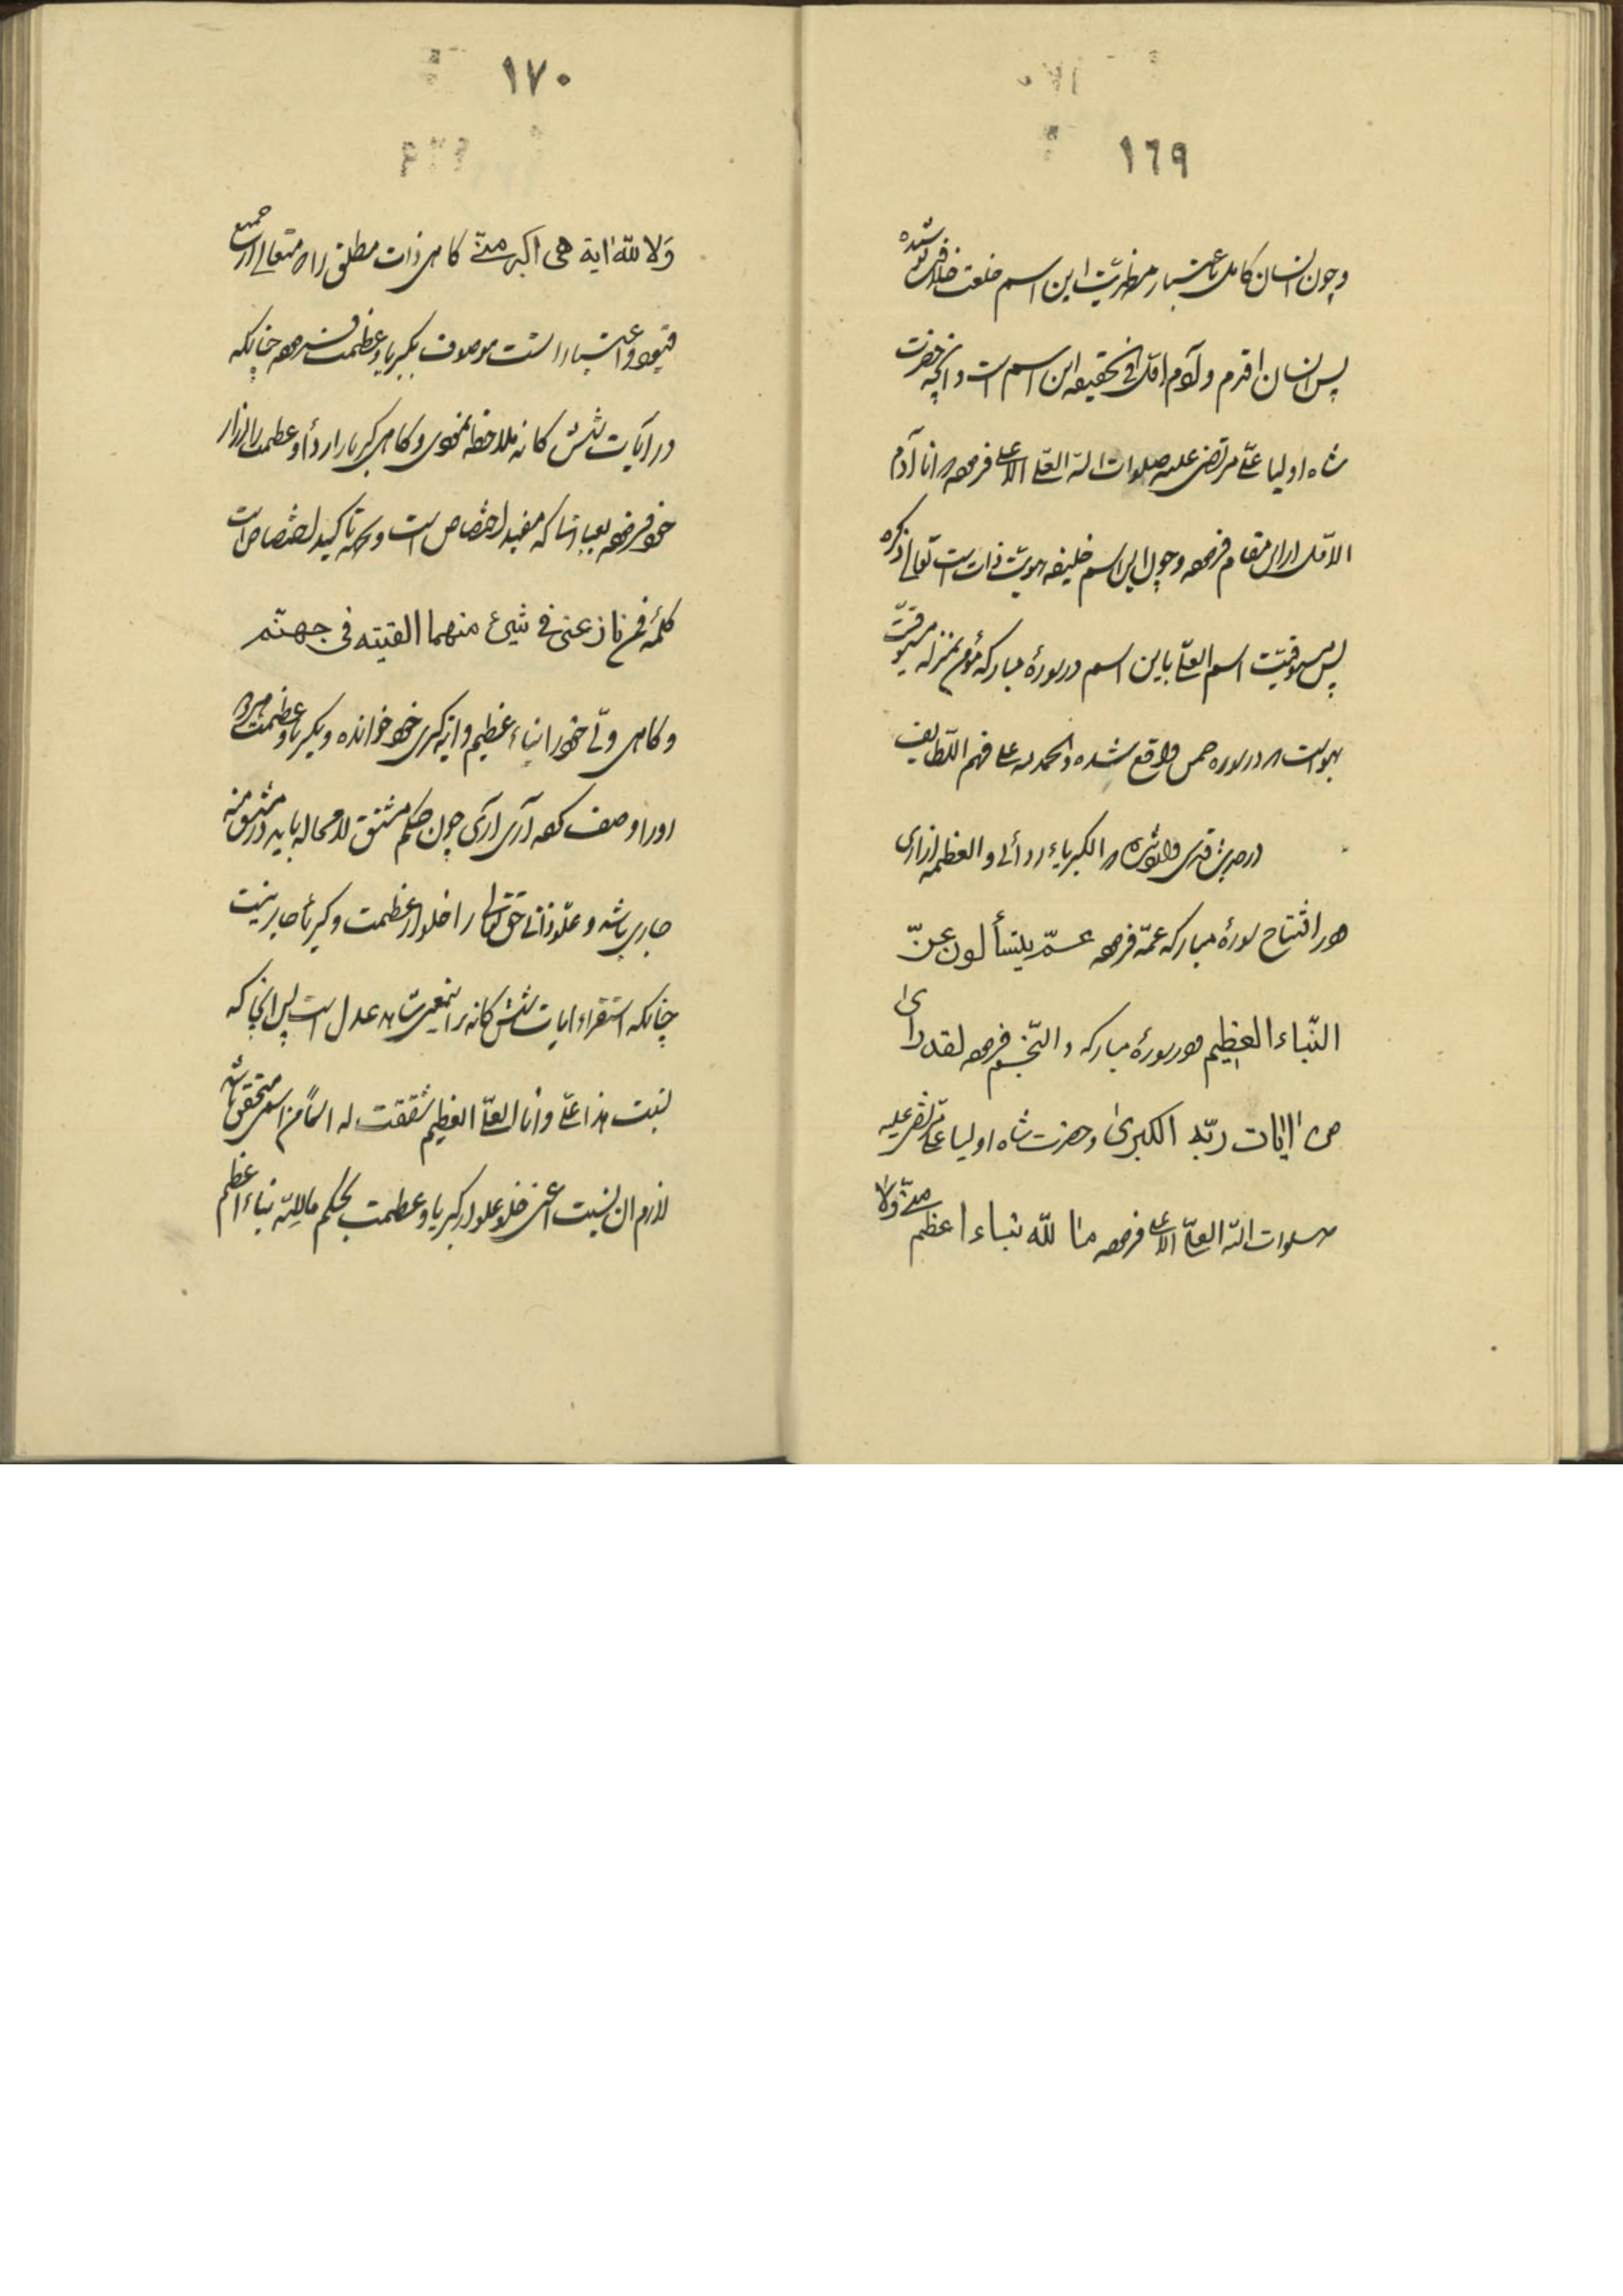 ١٦٩
وچون انسان کامل باعتبار مظهریت این اسم خلعت خلافت پوشیده
پس انسان اقدم و آدم اول فی الحقیقه این اسم است و آنچه حضرت
شاه اولیا علی مرتضی علیه صلوات الله العلی الاعلی فرموده انا آدم
الاول از این مقام فرموده وچون این اسم خلیفه هویت ذات است تعالی ذکره
پس مسبوقیت اسم العلی باین اسم در سورهٔ مبارکه مؤمن بمنزله مسبوقیت
بهواست که در سوره حمعسق واقع شده والحمد لله علی فهم اللطایف
در حدیث قدسی وارد شده که الکبریاء ردائی والعظمة ازاری
ودر افتتاح سورهٔ مبارکه عمّ فرموده عمّ یتسألون عن
النّباء العظیم ودر سورهٔ مبارکه والنّجم فرموده لقد رای
من اٰیات ربّه الکبریٰ وحضرت شاه اولیا علی مرتضی علیه
صلوات الله العلی الاعلی فرموده ما لله نباء اعظم منّی ولا
١٧٠
وَلا للّه اٰیة هی اکبر منّی کاهی ذات مطلق را که متعالی از جمیع
قیود و اعتبارات است موصوف بکبریا وعظمت فرموده چنانکه
در آیات شش کانه ملاحظه نمودی وکاهی کبریا را ردا وعظمت را ازار
خود فرموده بعبارتها که مفید اختصاص است وبجهة تاکید اختصاص است
کلمهٔ فمن نازعنی فی شیئ منهما القیته فی جهنّم
وکاهی ولی خود را نباء عظیم وایه کبری خود خوانده وبکبریا وعظمت
اورا وصف کرده آری آری چون حکم مشتق لامحاله باید در مشتق منه
جاری باشد و علو ذاتی حق تعالی را خلو از عظمت وکبریا جایز نیست
چنانکه استقراء ایات شش کانه بر اینمعنی شاهد عدل است پس از آنجا که
نسبت هذا علی وانا العلی العظیم شققت له اسما من اسمی متحقق باشد
لازم ان نسبت اعنی خلو علو از کبریا وعظمت بحکم ما للّه نباء اعظم